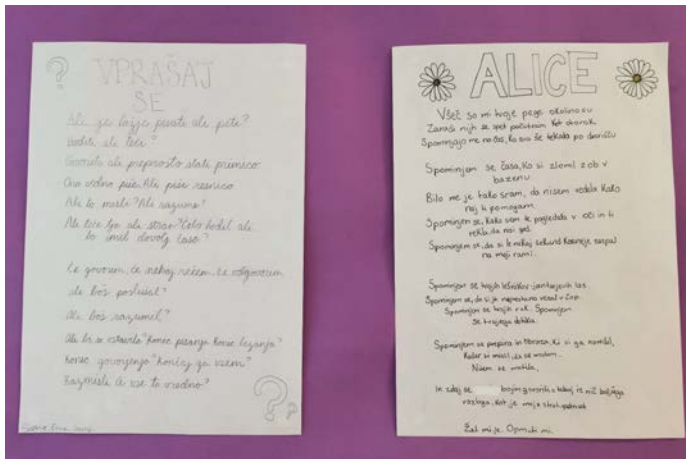 VPRAŠAJ
SE
Ali je lažje pisati ali peti?
Hoditi ali teči?
Govoriti ali preprosto stati pri miru.
Ono vedno piše. Ali piše resnico.
Ali to misli? Ali razume?
Ali teče bo ali
bo imel dovolj časa?
Če govorim, če nekaj rečem, če odgovorim
ali boš poslušal?
Ali boš razumel?
Ali bi se ustavilo "Konec pisanja Konec
Konec govorjenja"
Razmisli če vse to vredno?
ALICE
Všeč so mi tvoje pege okoli nosu
Zaradi njih se spet počutim kot otrok
Spominjajo me na čas, ko sva še tekala po dvorišču
Spominjam se časa, ko si zlomil zob v
bazenu
Bilo me je tako sram, da nisem vedela kako
naj ti pomagam.
Spominjam se, kako sem te pogledala v oči in ti
rekla, da nosi
Spominjam se, da si le nekaj sekund kasneje zaspal
na moji rami.
Spominjam se tvojih lešnikov-jantarjevih las
Spominjam se, da si jih nepravilno vezal v čop
Spominjam se tvojih rok. Spominjam
se tvojega dotika.
Spominjam se prepira in obraza, ki si ga naredil,
kadar si mislil, da se motim.
Nisem se motila.
In zdaj se bojim govoriti s tabo iz nič boljšega
razloga, kot je moja strahopetnost
Žal mi je. Oprosti mi.